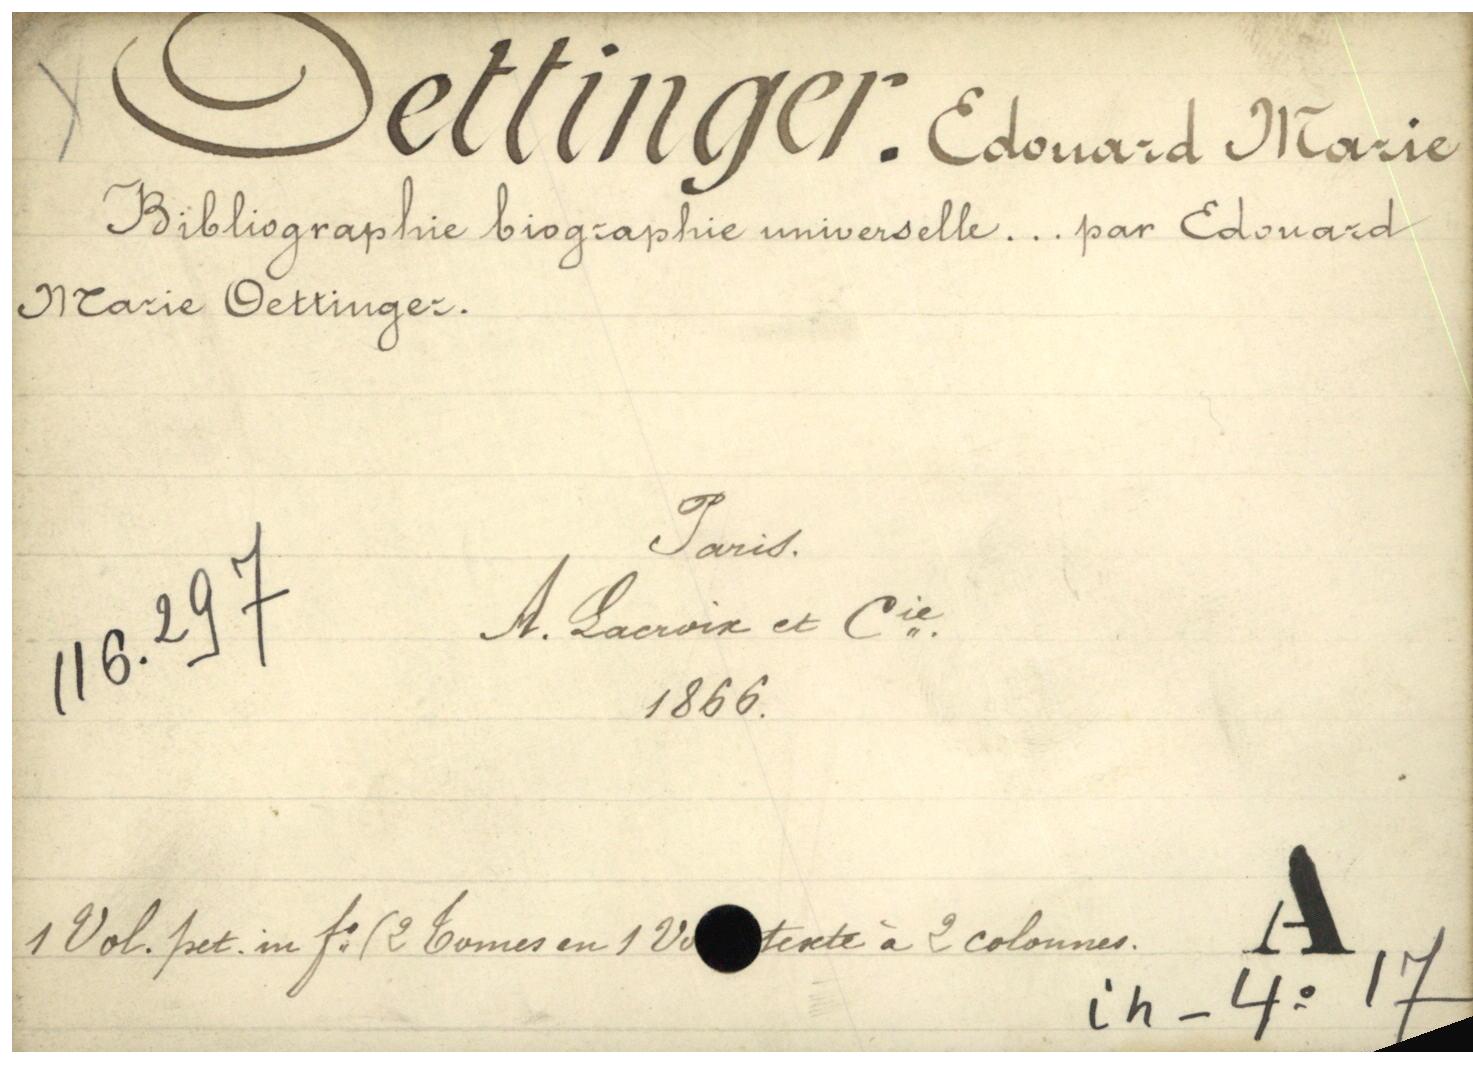 Oettinger. Edouard Marie
Bibliographie biographie universelle... par Edouard
Marie Oettinger.
Paris.
116.297
A. Lacroix et Cie.
1866.
1 Vol. pet. in fo. (2 Tomes en 1 Vo texte à 2 colonnes.
A
in-4º 17